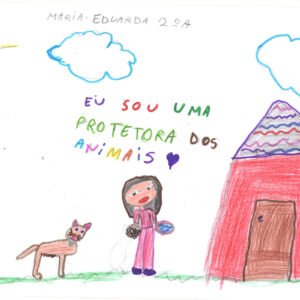 MARIA-EDUARDA 2ºA
EU SOU UMA
PROTETORA DOS
ANIMAIS